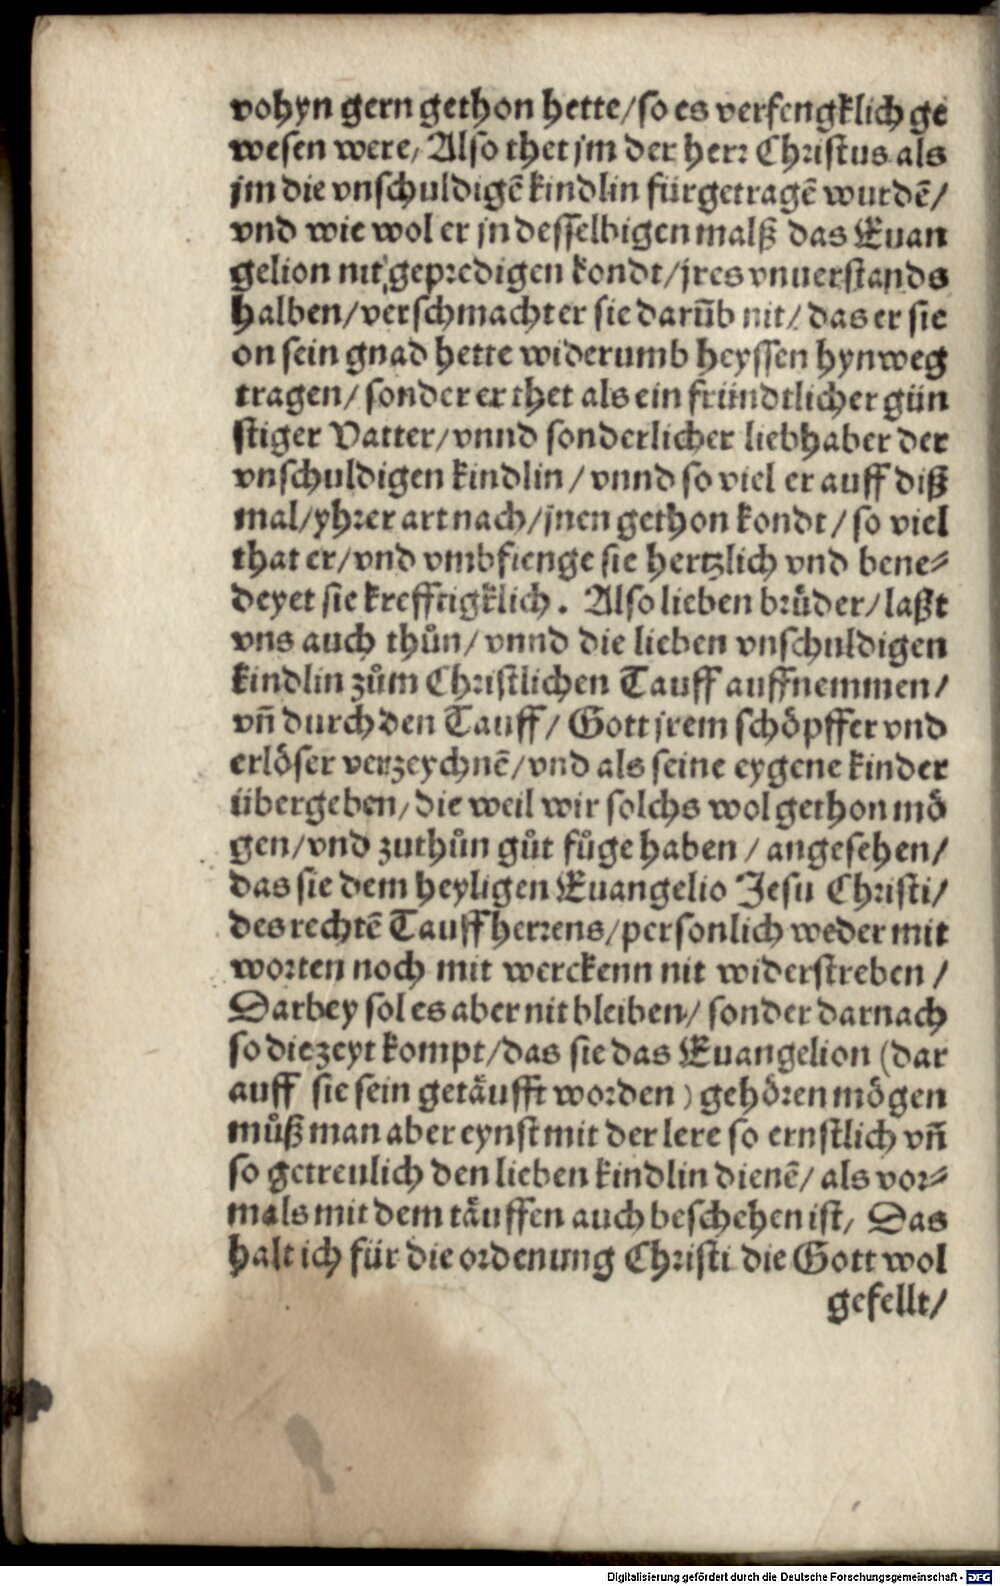 vohyn gern gethon hette/so es verfengklich ge
wesen were/ Also thet jm der herr Christus als
jm die vnschuldigē kindlin fürgetragē wurdē/
vnd wie wol er jn desselbigen malß das Euan
gelion nit gepredigen kondt/jres vnuerstands
halben/verschmacht er sie darūb nit/ das er sie
on sein gnad hette widerumb heyssen hynweg
tragen/ sonder er thet als ein fründtlicher gün
stiger Vatter/vnnd sonderlicher liebhaber der
vnschuldigen kindlin/ vnnd so viel er auff diß
mal/yhrer art nach/jnen gethon kondt/ so viel
that er/vnd vmbfienge sie hertzlich vnd bene⸗
deyet sie krefftigklich. Also lieben brůder/laßt
vns auch thůn/ vnnd die lieben vnschuldigen
kindlin zům Christlichen Tauff auffnemmen/
vn̄ durch den Tauff/ Gott jrem schöpffer vnd
erlöser verzeychnē/vnd als seine eygene kinder
übergeben/die weil wir solchs wol gethon mö
gen/vnd zuthůn gůt fůge haben/ angesehen/
das sie dem heyligen Euangelio Jesu Christi/
des rechtē Tauffherrens/personlich weder mit
worten noch mit werckenn nit widerstreben/
Darbey sol es aber nit bleiben/ sonder darnach
so die zeyt kompt/das sie das Euangelion (dar
auff sie sein getäufft worden) gehören mögen
můß man aber eynst mit der lere so ernstlich vn̄
so getreulich den lieben kindlin dienē/ als vor⸗
mals mit dem täuffen auch beschehen ist/ Das
halt ich für die ordenung Christi die Gott wol
gefellt/
Digitalisierung gefördert durch die Deutsche Forschungsgemeinschaft - DFG